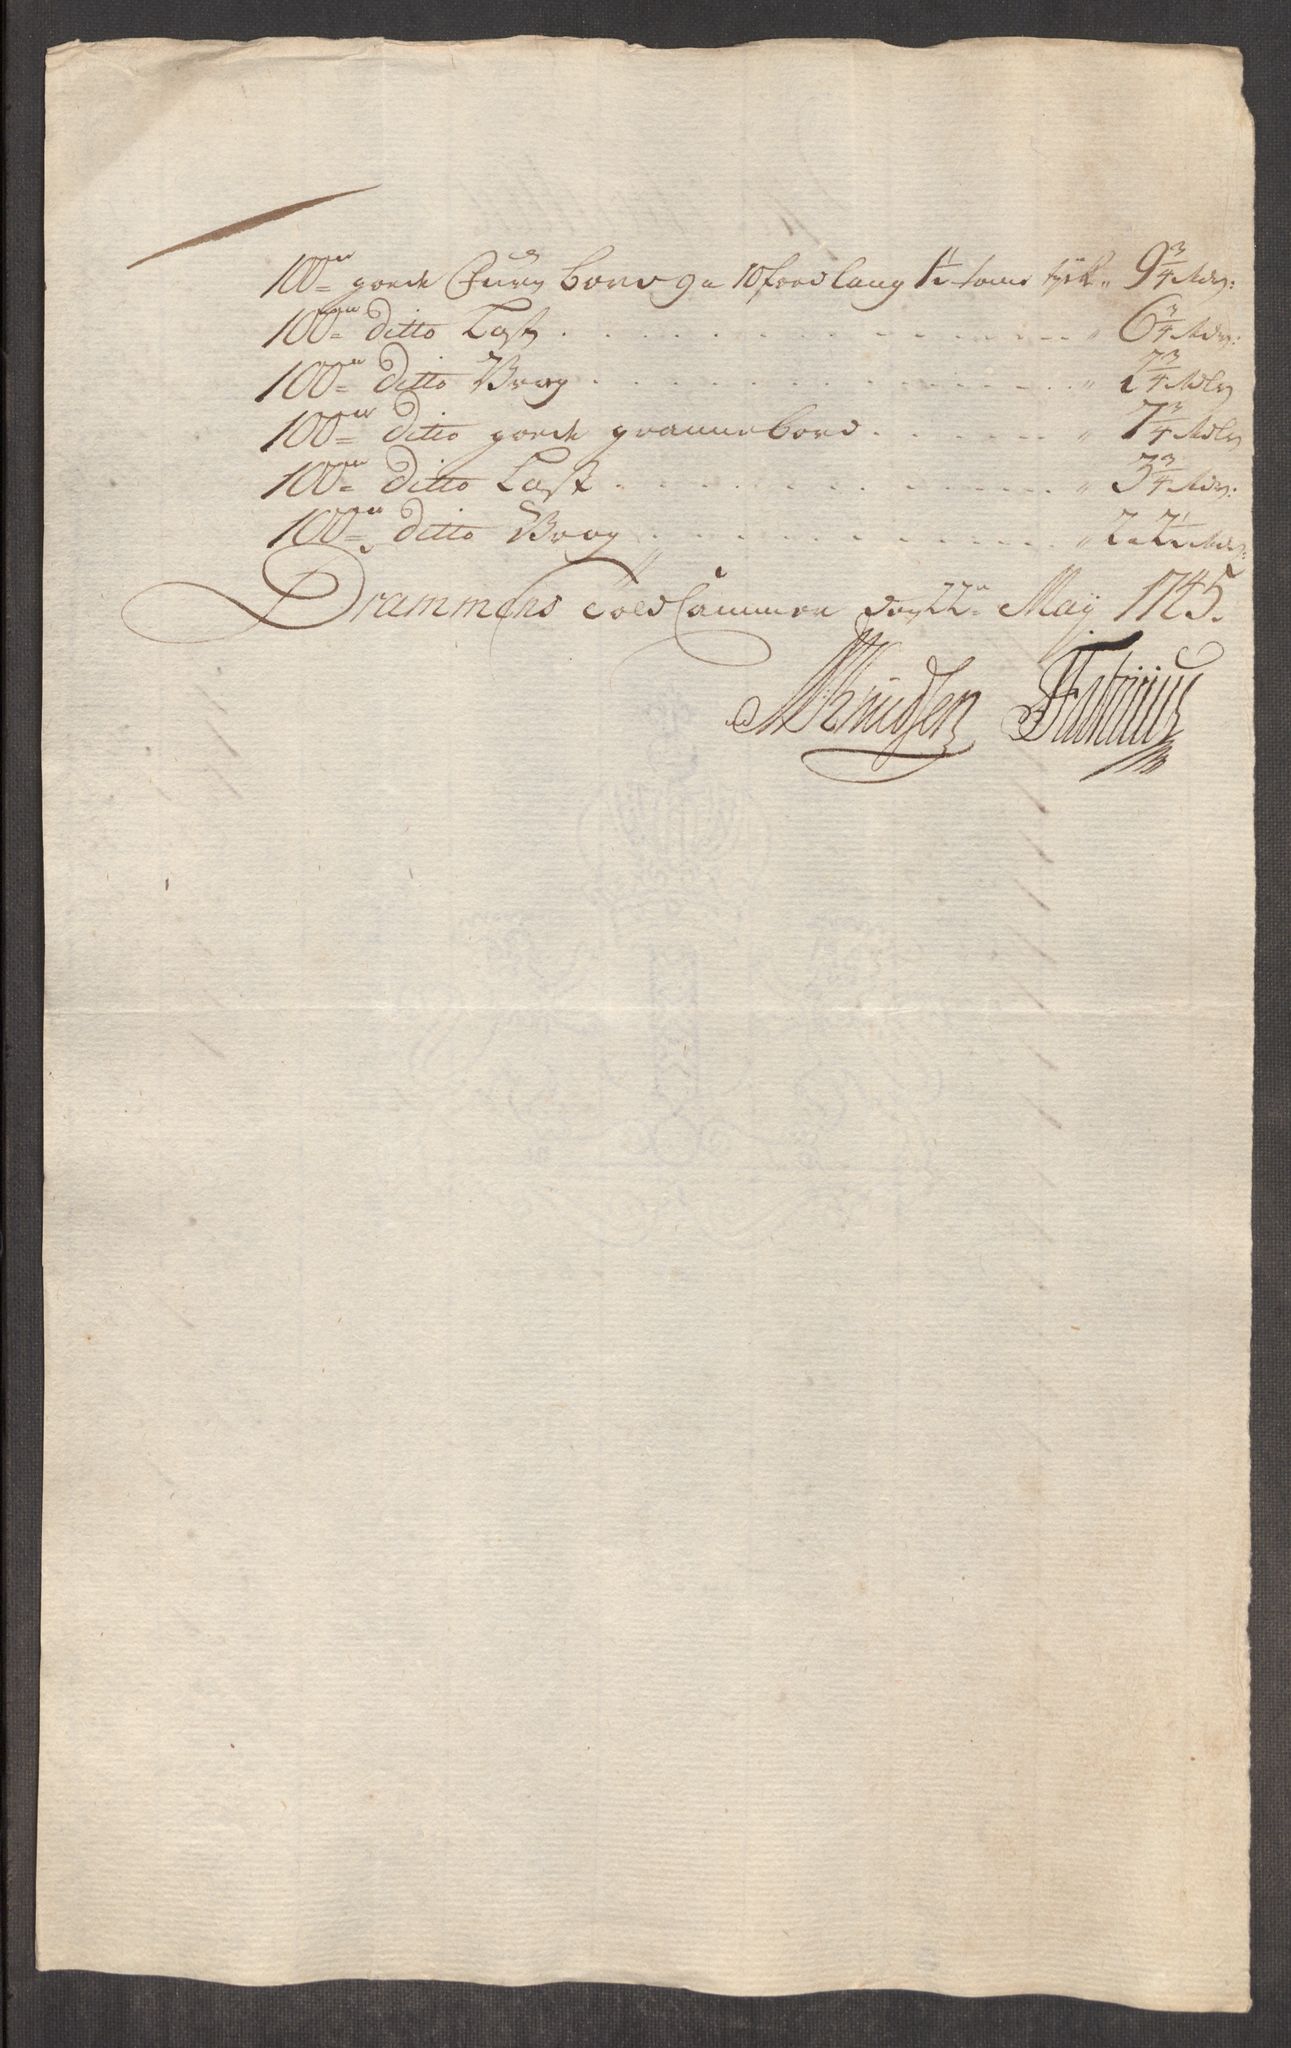 100de goede Furu bord 9 a 10 foed lang 1½ tome tyck „ 9¾ Rdr:
100de ditto Last . . . „ 6¾ Rdr:
100de ditto Vrag . . . „ ¾ Rdlr
100de ditto goede grannebord . . . „ 7¾ Rdlr
100de ditto Last . . . „ 3¾ Rdr:
100de ditto Vrag . . . „ 2 a 2½ Rdr:
Drammens Told Cammer den 22de May 1745.
Knudsen Fabricius